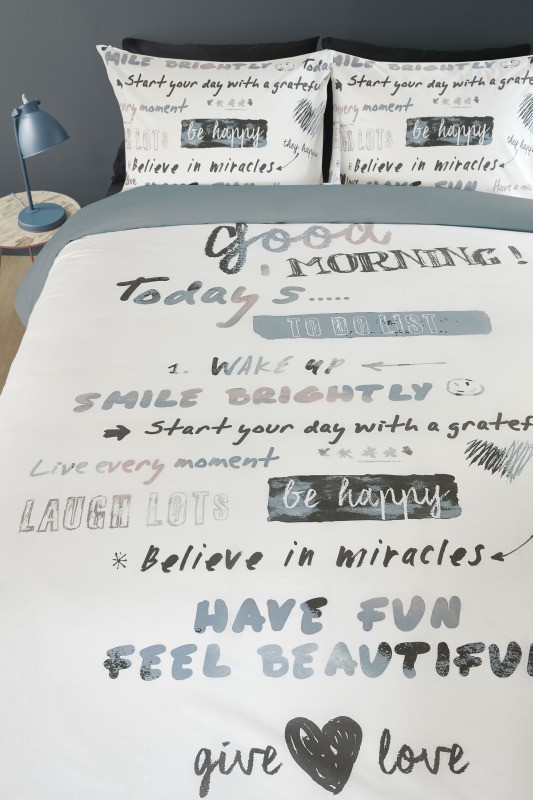 SMILE BRIGHTLY Today
Start your day with a grateful
every moment
LAUGH LOTS be happy they happe
*Believe in miracles
HAVE FUN
SMILE BRIGHTLY
Start your day with a grate
every moment
LAUGH LOTS be happy
*Believe in miracles
HAVE FUN Have a ni
good
MORNING!
Today s.....
TO DO LIST
1. WAKE UP
SMILE BRIGHTLY
Start your day with a gratef
Live every moment
LAUGH LOTS be happy
* Believe in miracles
HAVE FUN
FEEL BEAUTIFU
give love